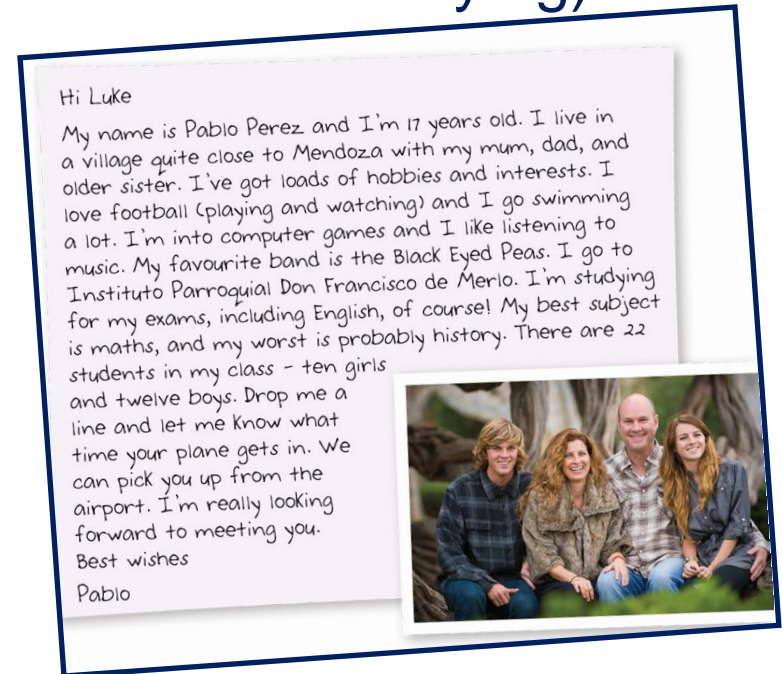 Hi Luke
My name is Pablo Perez and I'm 17 years old. I live in
a village quite close to Mendoza with my mum, dad, and
older sister. I've got loads of hobbies and interests. I
love football (playing and watching) and I go swimming
a lot. I'm into computer games and I like listening to
music. My favourite band is the Black Eyed Peas. I go to
Instituto Parroquial Don Francisco de Merlo. I'm studying
for my exams, including English, of course! My best subject
is maths, and my worst is probably history. There are 22
students in my class - ten girls
and twelve boys. Drop me a
line and let me know what
time your plane gets in. We
can pick you up from the
airport. I'm really looking
forward to meeting you.
Best wishes
Pablo